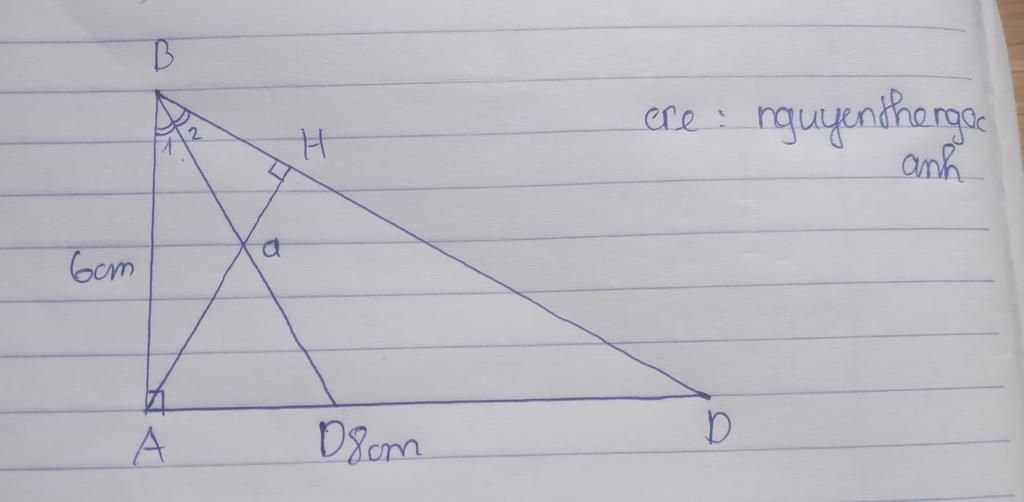 B
cre : nguyenthengoc
anh
1 2
H
a
6cm
A
D 8cm
D